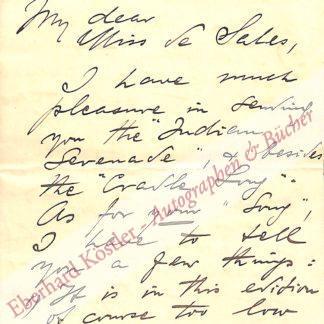 My dear
Miss de Sales,
I have much
pleasure in sending
you the "Indian
Serenade", & besides
the "Cradle Song".
As for your "Song",
I have to tell
you a few things:
It is in this edition
of course too low
Eberhard Köstler - Autographen & Bücher